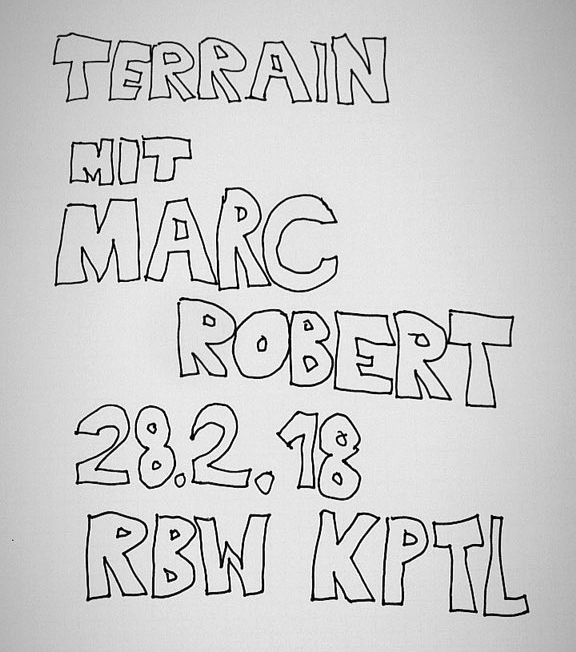 TERRAIN
MIT
MARC
ROBERT
28.2.18
RBW KPTL